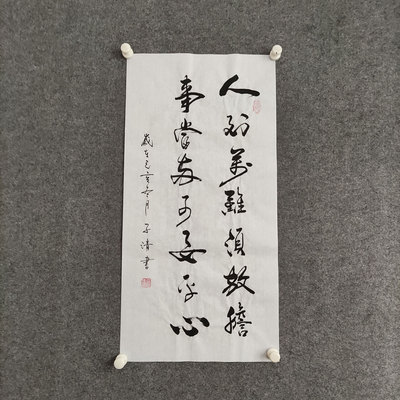 人到萬難須放膽
事當兩可要平心
歲在己亥冬月子清書